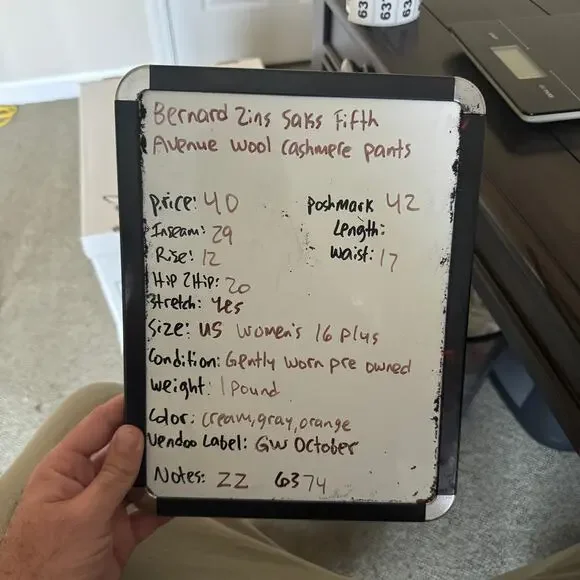 Bernard Zins Saks Fifth
Avenue Wool Cashmere pants
price: 40
Poshmark 42
Inseam: 29
Length:
Rise: 12
Waist: 17
Hip 2 Hip: 20
Stretch: Yes
Size: US Women's 16 Plus
Condition: Gently worn pre owned
Weight: 1 Pound
Color: Cream, gray, orange
Vendoo Label: GW October
Notes: ZZ 6374